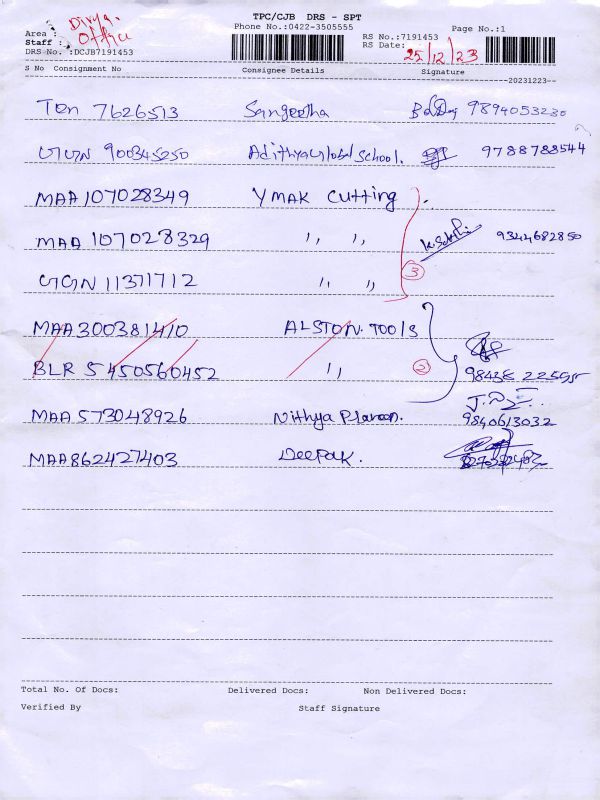 TPC/CJB DRS - SPT
Divya.
Phone No.:0422-3505555
Page No.:1
Area : Office
RS No.:7191453
Staff :
RS Date: 25/12/23
DRS No. :DCJB7191453
S No Consignment No Consignee Details Signature
20231223
Ten 7626513 Sangeetha 9894053230
GGN 900345250 Adithya Global School. 9788788544
MAA 107028349 YMAK Cutting
MAA 107028329 ,, ,, 9344682850
GGN 11371712 ,, ,, 3
MAA 300381410 ALSTON. TOOLS
BLR 5450560452 ,, 2
MAA 573048926 Nithya 9840613032
MAA 862427403 Deepak.
Total No. Of Docs: Delivered Docs: Non Delivered Docs:
Verified By Staff Signature